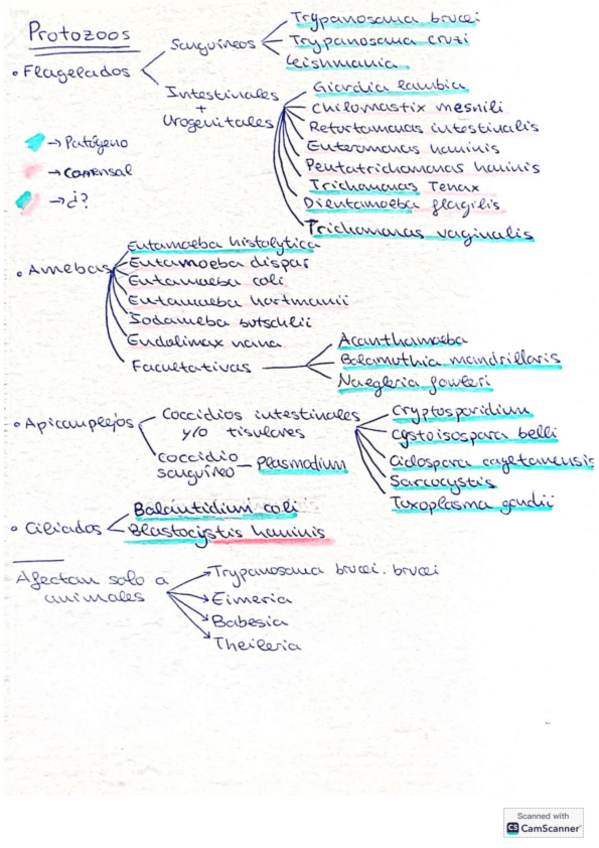 Protozoos
• Flagelados
Sanguíneos
Trypanosoma brucei
Trypanosoma cruzi
Leishmania
Intestinales
+
Urogenitales
Giardia lambia
Chilomastix mesnili
Retortamonas intestinalis
Enteromonas hominis
Pentatrichomonas hominis
Trichomonas Tenax
Dientamoeba fragilis
Trichomonas vaginalis
→ Patógeno
→ comensal
→ ¿?
• Amebas
Entamoeba histolytica
Entamoeba dispar
Entamoeba coli
Entamoeba hartmanii
Iodameba butschlii
Endolimax nana
Facultativas
Acanthamoeba
Balamuthia mandrillaris
Naegleria fowleri
• Apicomplejos
Coccidios intestinales
y/o tisulares
Cryptosporidium
Cystoisospora belli
Ciclospora cayetanensis
Sarcocystis
Toxoplasma gondii
coccidio
sanguíneo – Plasmodium
• Ciliados
Balantidium coli
Blastocystis hominis
Afectan solo a
animales
Trypanosoma brucei. brucei
Eimeria
Babesia
Theileria
Scanned with
CS CamScanner